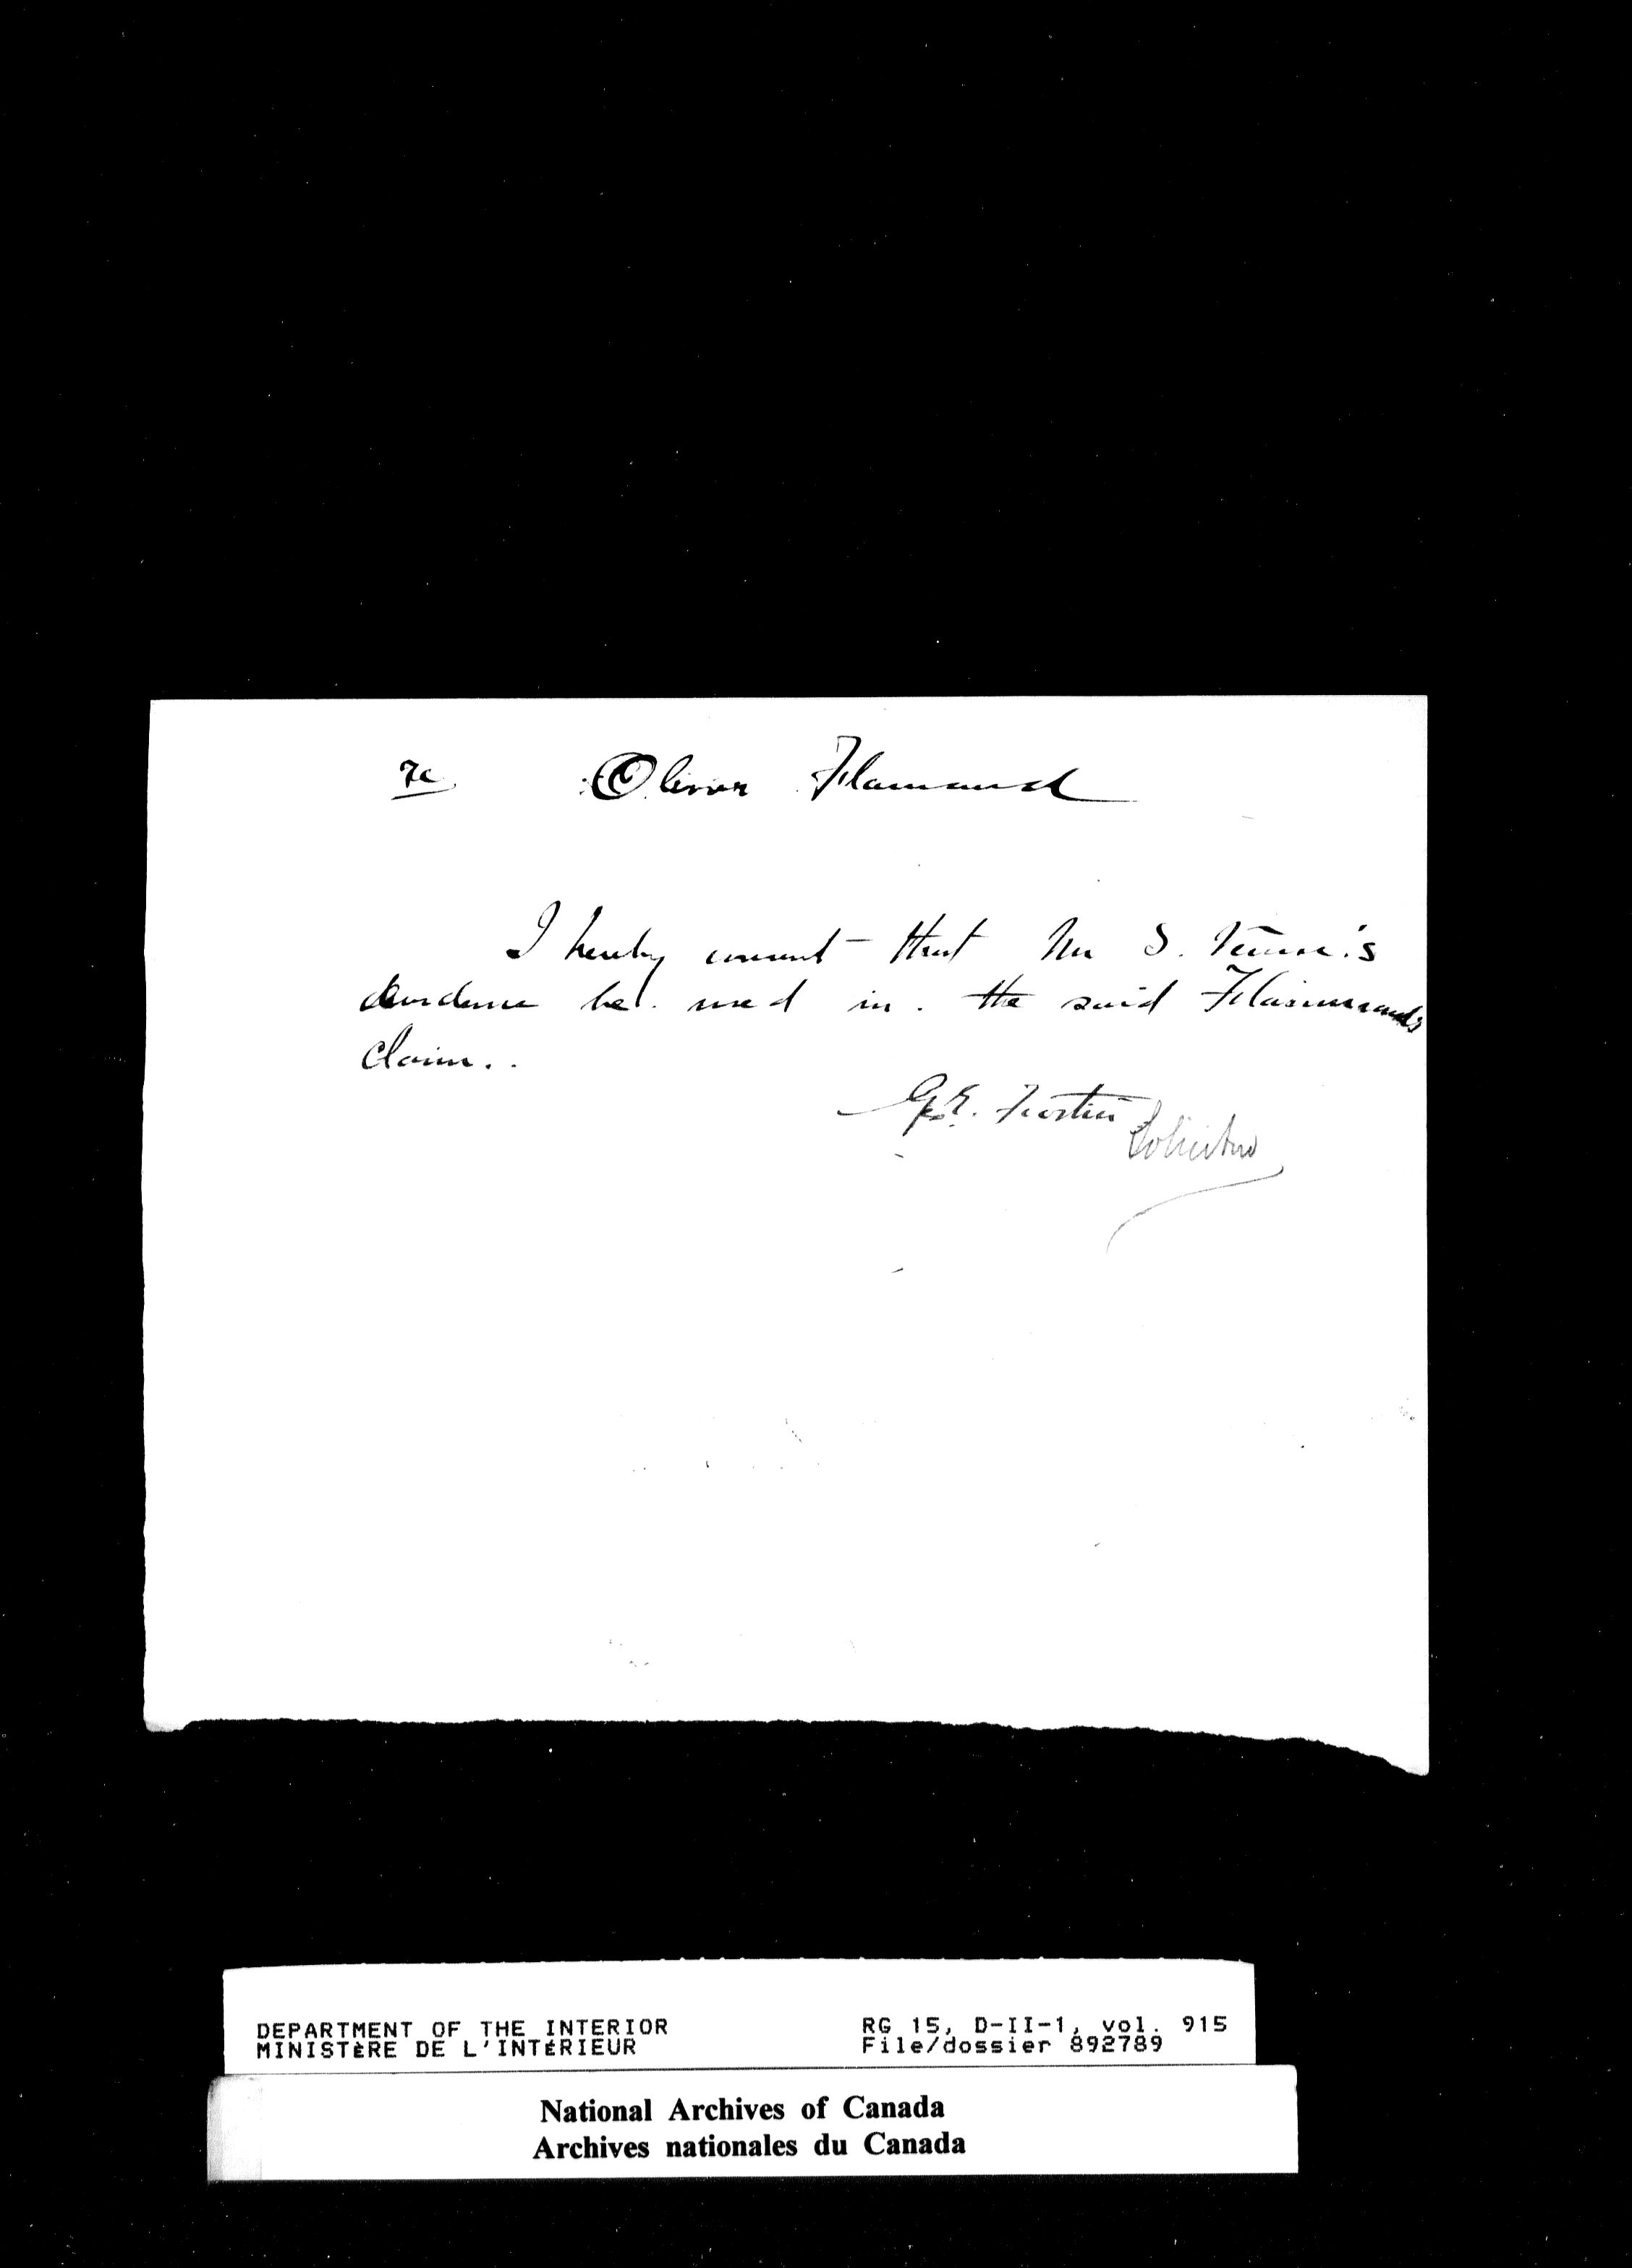 re Oliver Flamand
I hereby consent that Mr S. Venne's
evidence be used in the said Flammand's
Claim.
Geo. E. Fortin
Solicitor
DEPARTMENT OF THE INTERIOR RG 15, D-II-1, vol. 915
MINISTÈRE DE L'INTÉRIEUR File/dossier 892789
National Archives of Canada
Archives nationales du Canada